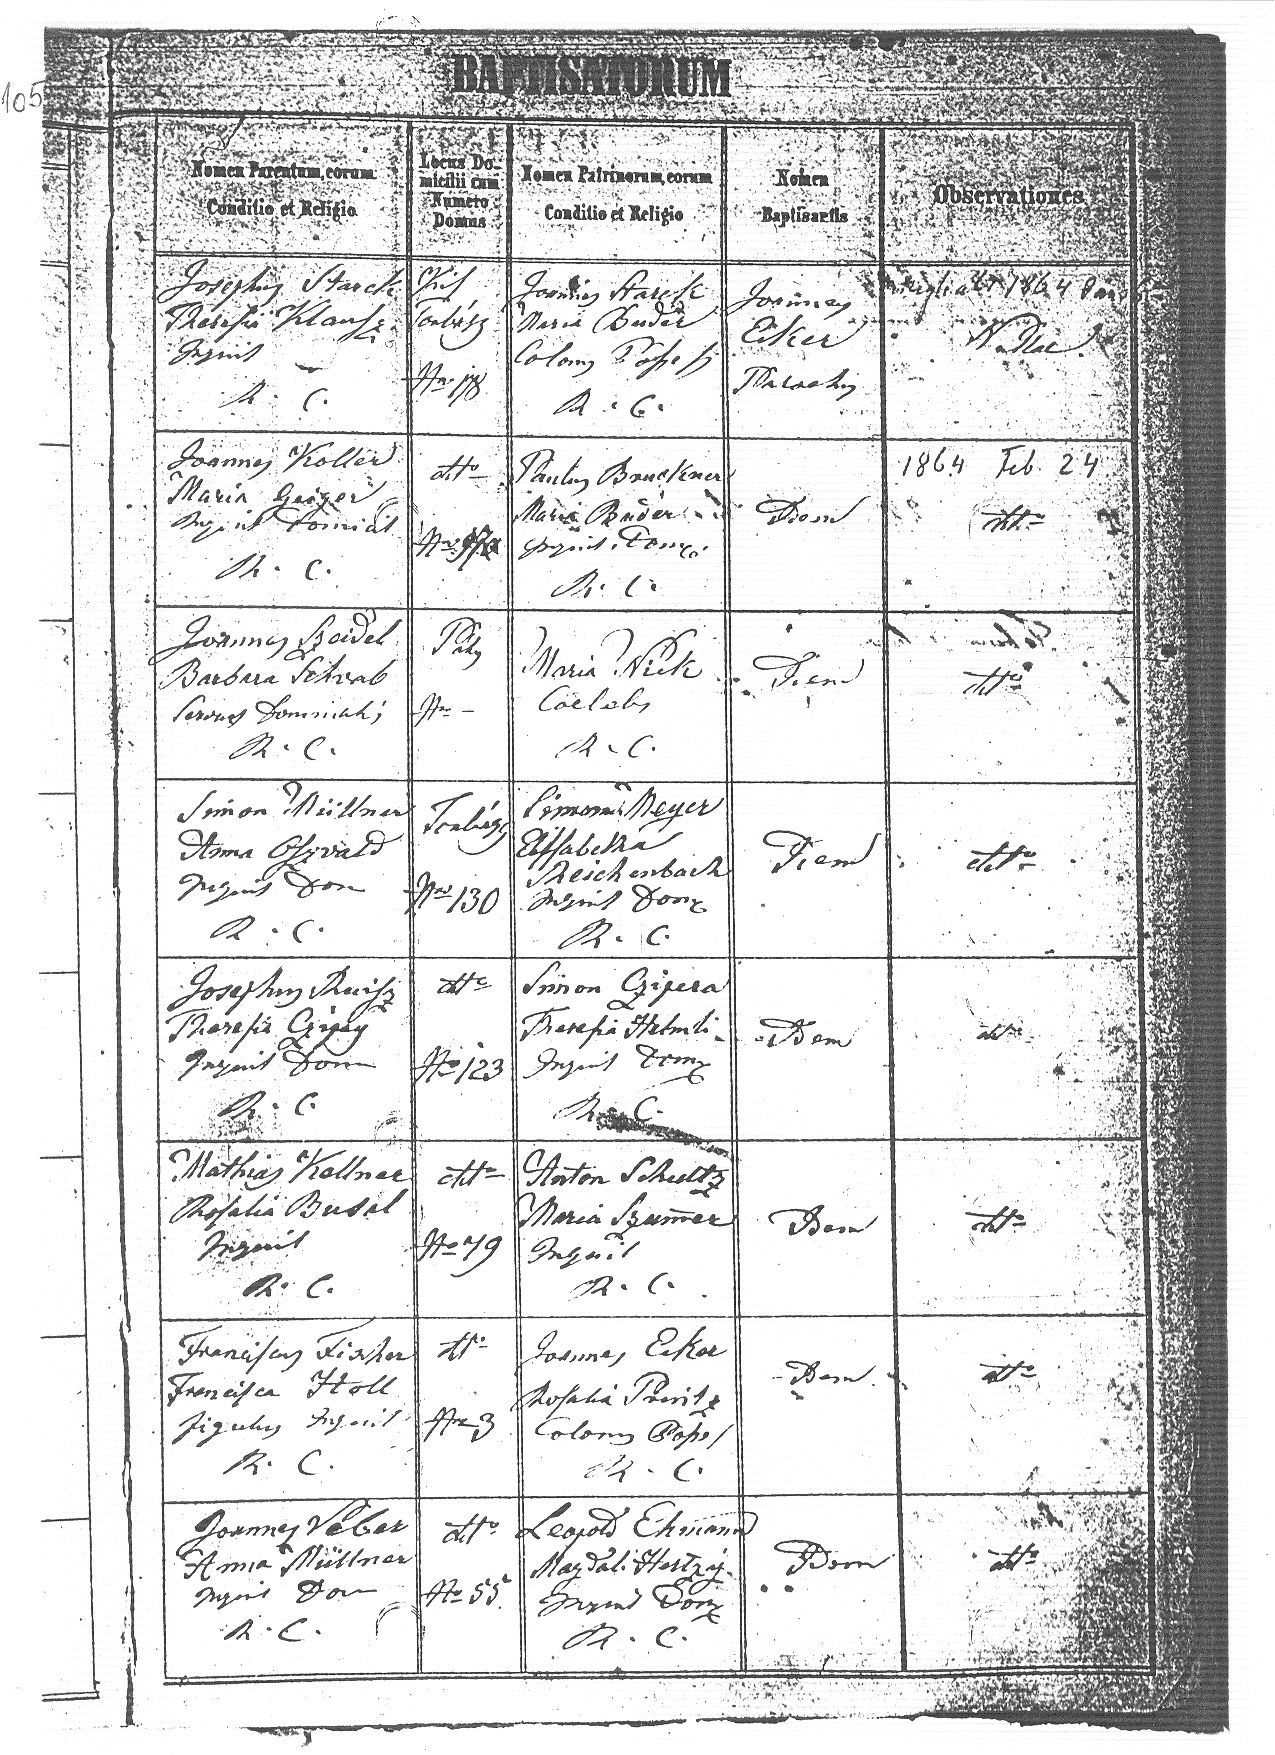 105
BAPTISATORUM
Nomen Parentum, eorum
Conditio et Religio
Locus Do-
micilii cum
Numero
Domus
Nomen Patrinorum, eorum
Conditio et Religio
Nomen
Baptisantis
Observationes
Josephus Starck
Theresia Klausz
Inquil
R. C.
Kis
Torbágy
Nro 178
Joannes Starck
Maria Buder
Colonus
R. C.
Joannes
Eiker
Parochus
1864
Joannes Koller
Maria Geiger
Inquil Dominal
R. C.
dtto
Nro
Paulus Bruckner
Maria Buder
Inquil. Dom.
R. C.
Idem
1864 Feb. 24
dtto
Joannes Szeidel
Barbara Schwab
Servus Dominalis
R. C.
Páty
Nro -
Maria Wick
Coelebs
R. C.
Idem
dtto
Simon Müllner
Anna Oszvald
Inquil Dom
R. C.
Torbágy
Nro 130
Simon Meyer
Elisabetha
Reichenbach
Inquil Dom
R. C.
Idem
dtto
Josephus Reisz
Theresia Czipey
Inquil Dom
R. C.
dtto
No 123
Simon Czipera
Theresia Helmli
Inquil Dom
R. C.
Idem
dtto
Mathias Kellner
Rosalia Busal
Inquil
R. C.
dtto
No 79
Anton Schultz
Maria Szummer
Inquil
R. C.
Idem
dtto
Franciscus Fischer
Francisca Holl
figulus Inquil
R. C.
dtto
Nro 3
Joannes Eiker
Rosalia
Colonus
R. C.
Idem
dtto
Joannes Veber
Anna Müllner
Inquil Dom
R. C.
dtto
No 55
Leopold Ehmann
Magdal. Hertzig
Inquil Dom
R. C.
Idem
dtto